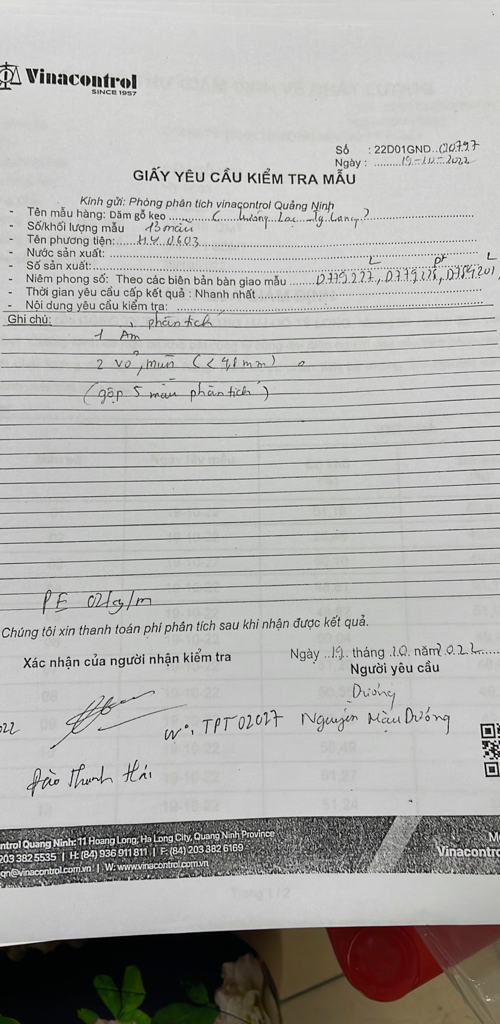 Vinacontrol
SINCE 1957
Số : 22D01GND..010797
Ngày : ........19-10-2022
GIẤY YÊU CẦU KIỂM TRA MẪU
Kính gửi: Phòng phân tích vinaçontrol Quảng Ninh
- Tên mẫu hàng: Dăm gỗ keo
- Số/khối lượng mẫu 13 mẫu
- Tên phương tiện: H.Y 0603
- Nước sản xuất:
- Số sản xuất:
- Niêm phong số: Theo các biên bản bàn giao mẫu 0779227, 0779228, 0789201
- Thời gian yêu cầu cấp kết quả : Nhanh nhất
- Nội dung yêu cầu kiểm tra:
Ghi chú: phân tích
1 Ẩm
2 vỏ, mùn (< 4,8 mm)
(gộp 5 mẫu phân tích)
PE 02/
Chúng tôi xin thanh toán phí phân tích sau khi nhận được kết quả.
Xác nhận của người nhận kiểm tra
Ngày .19. tháng .10. năm 2022
Người yêu cầu
Dương
022
TPT02027 Nguyễn Mậu Dương
Đào Thanh Hải
ntrol Quang Ninh: 11 Hoang Long, Ha Long City, Quang Ninh Province
203 382 5535 | H: (84) 936 911 811 | F: (84) 203 382 6169
qn@vinacontrol.com.vn | W: www.vinacontrol.com.vn
Vinacontro
Trang 1 / 2